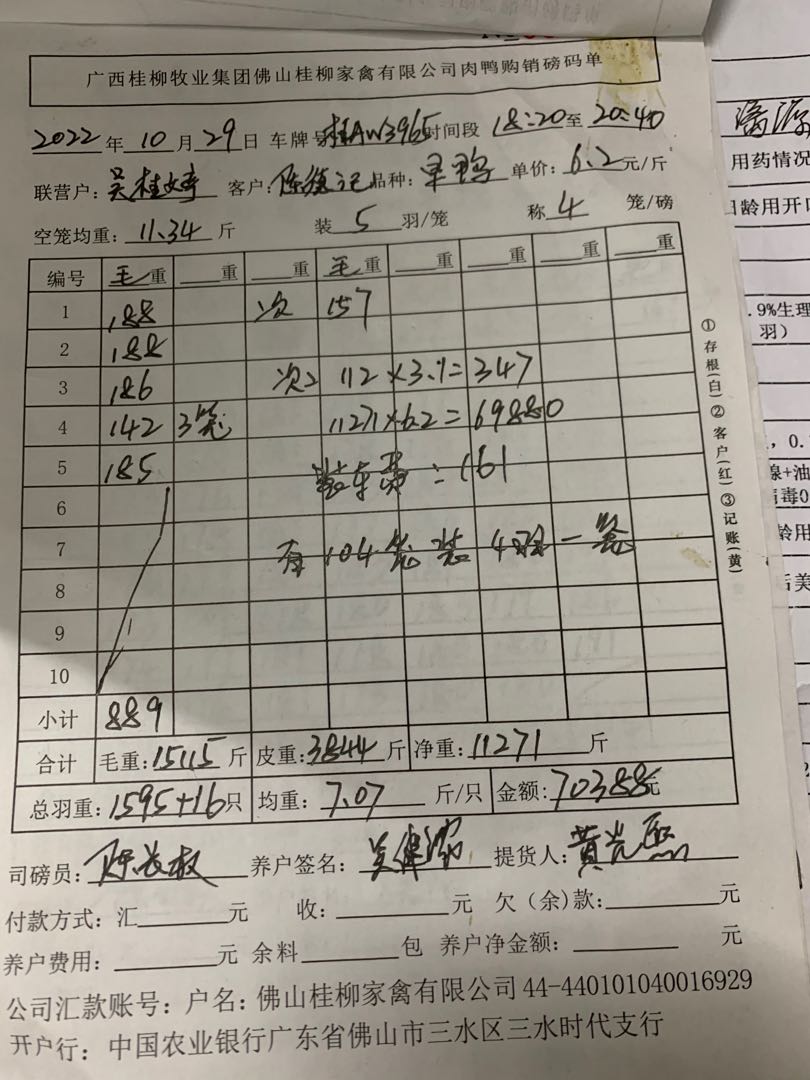 广西桂柳牧业集团佛山桂柳家禽有限公司肉鸭购销磅码单
2022年10月29日 车牌号桂AW3965时间段18:20至20:40
联营户:吴桂婷 客户:陈强记品种:旱鸭 单价:6.2元/斤
空笼均重:11.34斤 装5羽/笼 称4笼/磅
编号 毛重 重 重 毛重 重 重 重 重
1 188 次 157
2 188
3 186 次 112×3.1=347
4 142 3笼 11271×6.2=69880
5 185 装车费:161
6
7 有104笼装4只一笼
8
9
10
小计 889
合计 毛重:15115斤 皮重:3844斤 净重:11271斤
总羽重:1595+16只 均重:7.07斤/只 金额:70388元
司磅员: 养户签名: 提货人:黄光
付款方式:汇 元 收: 元 欠(余)款: 元
养户费用: 元 余料 包 养户净金额: 元
公司汇款账号:户名:佛山桂柳家禽有限公司 44-440101040016929
开户行:中国农业银行广东省佛山市三水区三水时代支行
①存根(白)②客户(红)③记账(黄)
用药情况
日龄用开
.9%生理
羽)
,0.
腺+油
毒0
龄用
后美